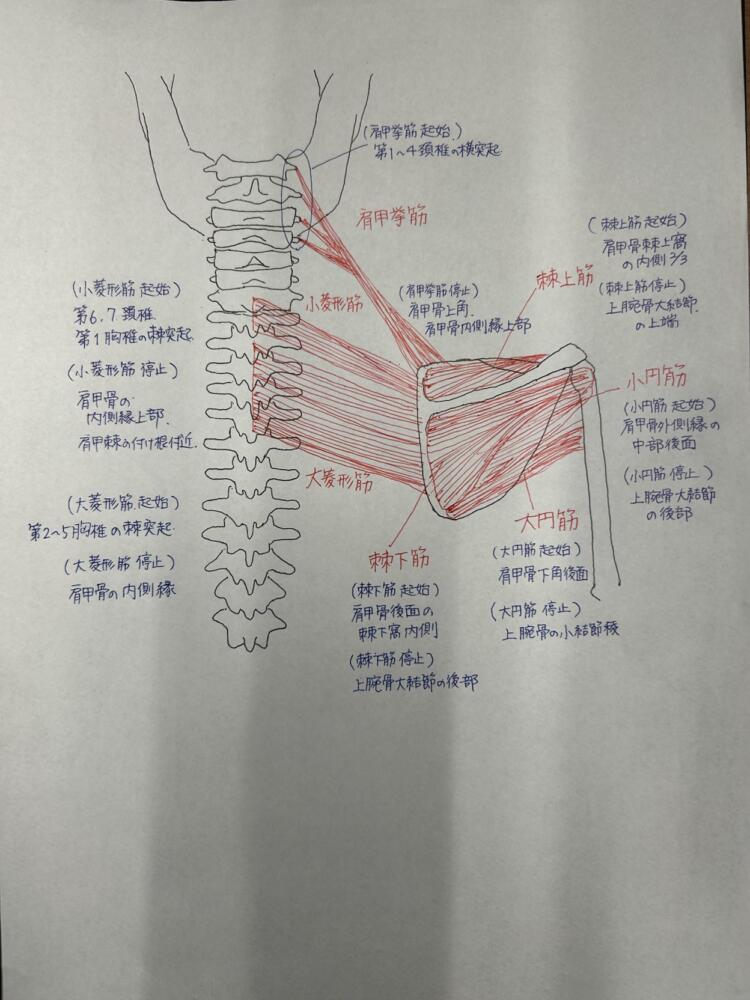 (肩甲挙筋 起始)
第1〜4頚椎の横突起
肩甲挙筋
(棘上筋 起始)
肩甲骨棘上窩
の内側 2/3
(棘上筋 停止)
上腕骨大結節
の上端
棘上筋
(肩甲挙筋 停止)
肩甲骨上角
肩甲骨内側縁上部
小菱形筋
(小菱形筋 起始)
第6.7頚椎
第1胸椎の棘突起.
(小菱形筋 停止)
肩甲骨の
内側縁上部.
肩甲棘の付け根付近.
小円筋
(小円筋 起始)
肩甲骨外側縁の
中部後面
(小円筋 停止)
上腕骨大結節
の後部
大菱形筋
(大菱形筋 起始)
第2〜5胸椎の棘突起
(大菱形筋 停止)
肩甲骨の内側縁
大円筋
(大円筋 起始)
肩甲骨下角後面
(大円筋 停止)
上腕骨の小結節稜
棘下筋
(棘下筋 起始)
肩甲骨後面の
棘下窩内側
(棘下筋 停止)
上腕骨大結節の後部